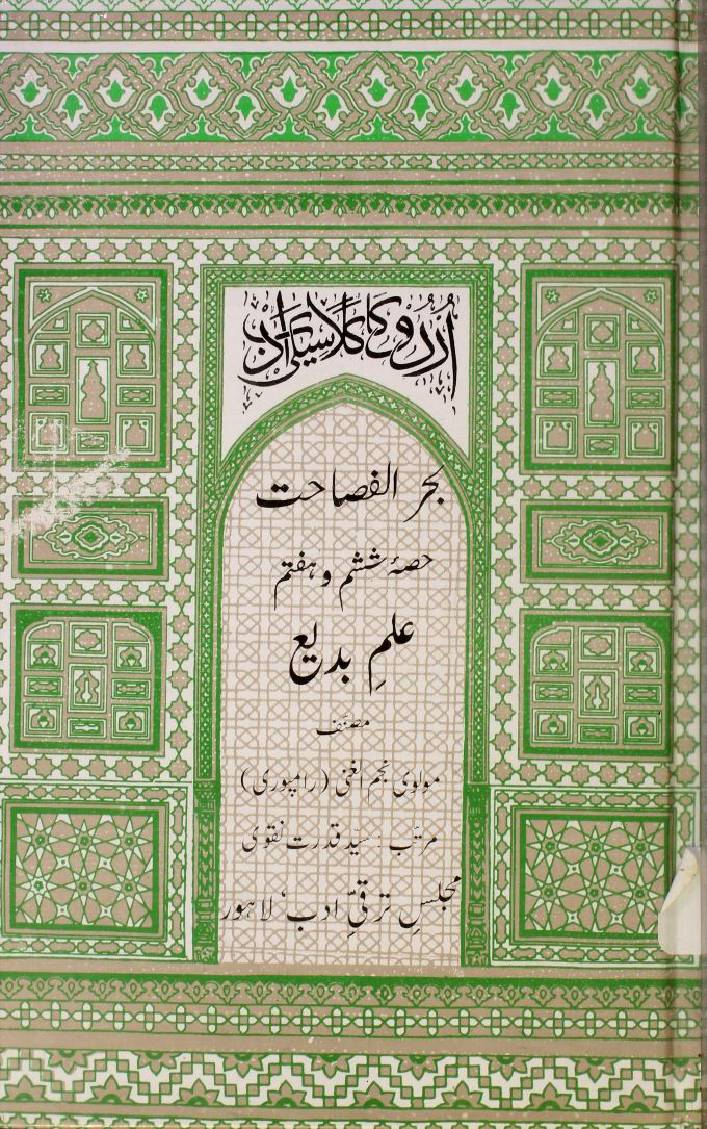 اُردو کا کلاسیکی ادب
بحر الفصاحت
حصۂ ششم و ہفتم
علمِ بدیع
مصنّف
مولوی نجم الغنی (رامپوری)
مرتّب : سیّد قدرت نقوی
مجلسِ ترقیِّ ادب، لاہور